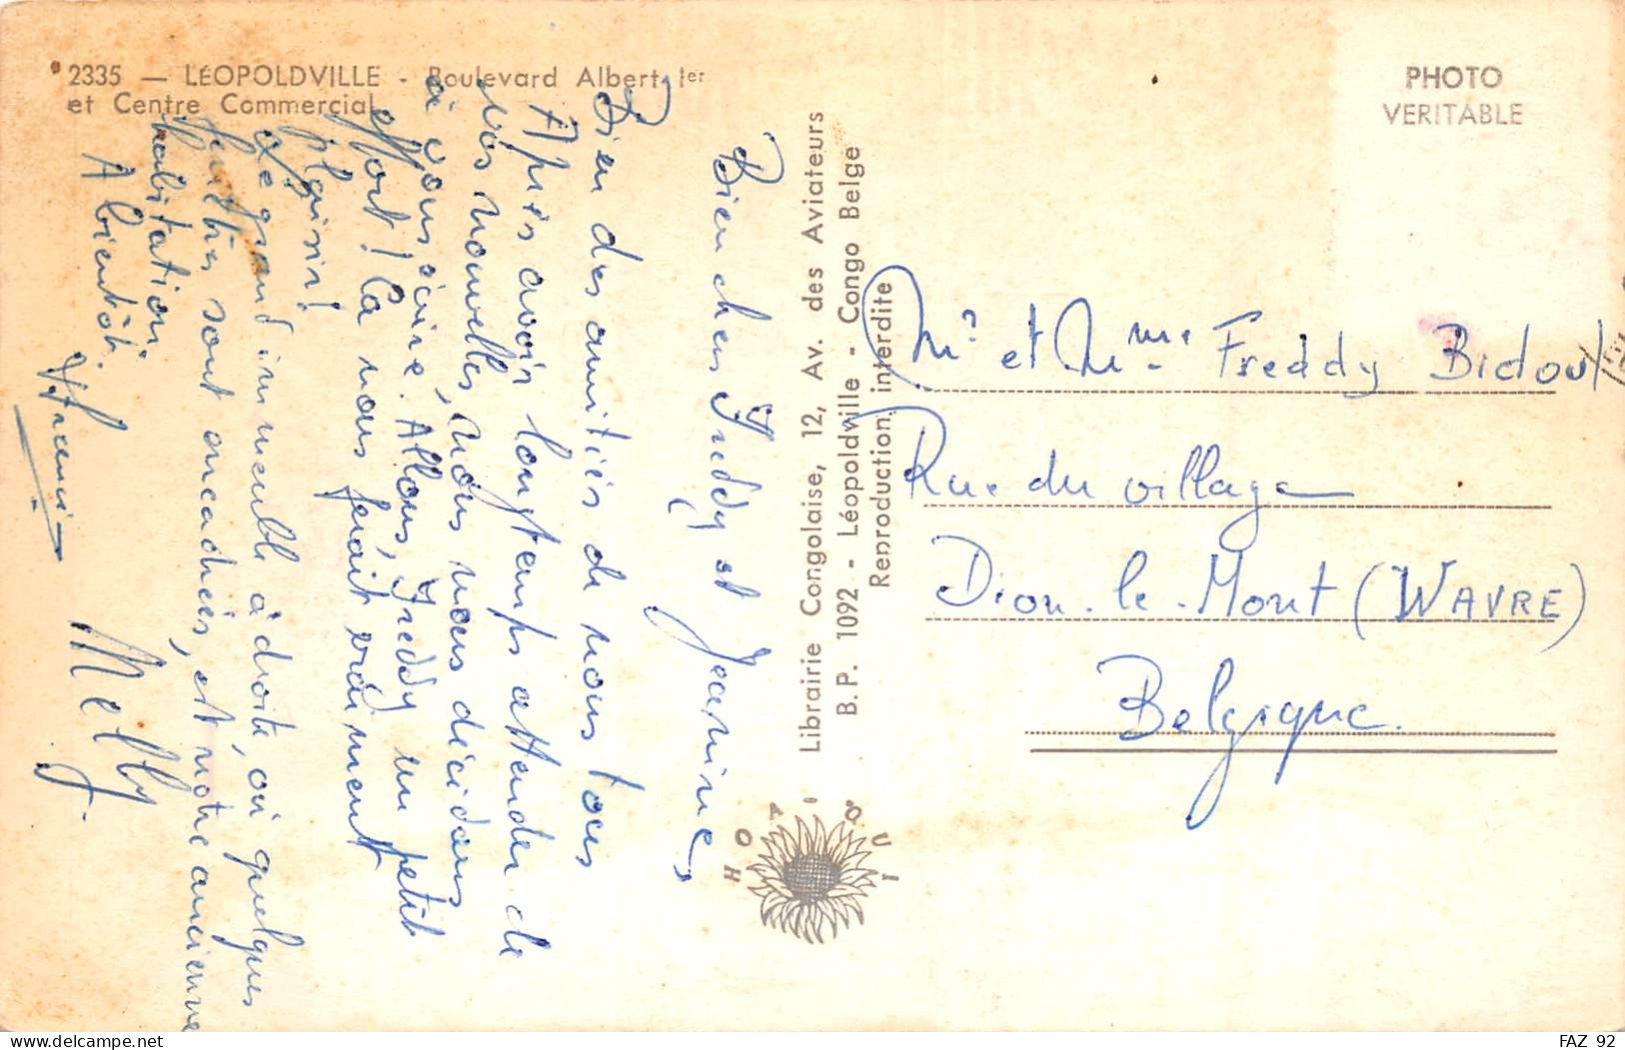 2335 — LÉOPOLDVILLE - Boulevard Albert Ier
et Centre Commercial
PHOTO
VERITABLE
Bien chers Freddy et Jeanine,
Bien des amitiés de nous tous
Après avoir longtemps attendu de
vos nouvelles, nous nous décidons
à vous écrire. Allons, Freddy un petit
effort! Ca nous ferait vraiment
plaisir!
Le grand immeuble à droite, où quelques
fenêtres sont encadrées, est notre ancienne
habitation.
A bientôt.
Nelly
Librairie Congolaise, 12, Av. des Aviateurs
B.P. 1092 - Léopoldville - Congo Belge
Reproduction interdite
Mr et Mme Freddy Bidoul
Rue du village
Dion-le-Mont (WAVRE)
Belgique.
FAZ 92